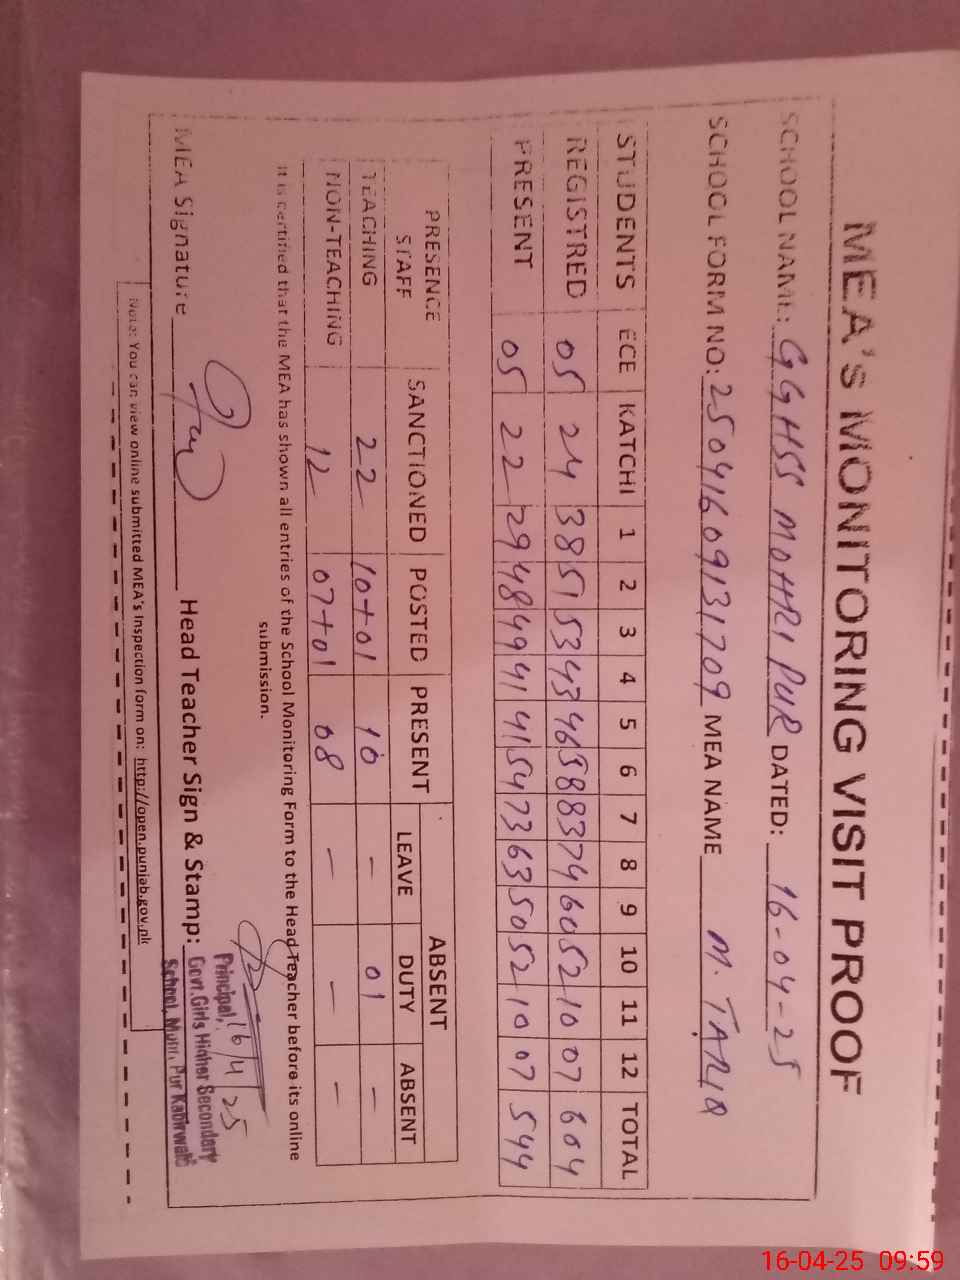 MEA'S MONITORING VISIT PROOF
SCHOOL NAME: GGHSS MOHRI PUR DATED: 16-04-25
SCHOOL FORM NO: 25041609131709 MEA NAME M. TARIQ
STUDENTS ECE KATCHI 1 2 3 4 5 6 7 8 9 10 11 12 TOTAL
REGISTRED 05 24 38 51 53 43 46 58 83 74 60 52 10 07 604
PRESENT 05 22 29 48 49 41 41 54 73 63 50 52 10 07 544
PRESENCE STAFF SANCTIONED POSTED PRESENT ABSENT
LEAVE DUTY ABSENT
TEACHING 22 10+01 10 - 01 -
NON-TEACHING 12 07+01 08 - - -
It is certified that the MEA has shown all entries of the School Monitoring Form to the Head Teacher before its online
submission.
MEA Signature Head Teacher Sign & Stamp:
Principal, 16/4/25
Govt. Girls Higher Secondary
School, Pur Kabirwala
Note: You can view online submitted MEA's Inspection form on: http://open.punjab.gov.pk
16-04-25 09:59